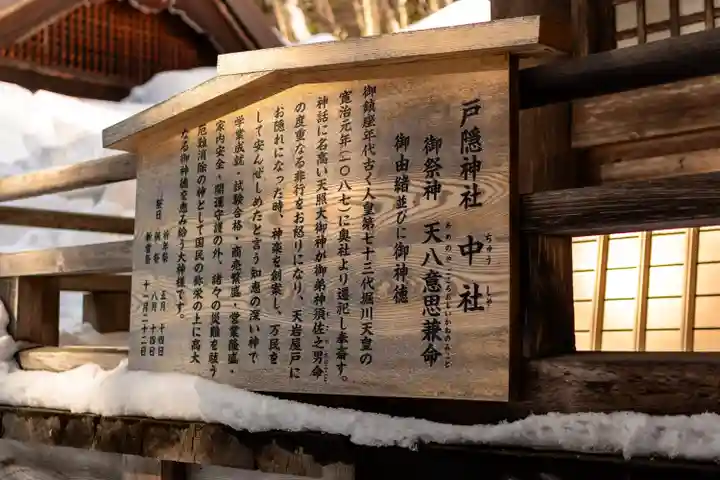 戸隠神社 中社
ちゅう しゃ
御祭神 天八意思兼命
あめのやごころおもいかねのみこと
御由緒並びに御神徳
御鎮座年代古く人皇第七十三代堀川天皇の
寛治元年(一〇八七)に奥社より遷祀し奉斎す。
神話に名高い天照大御神が御弟神須佐之男命
の度重なる非行をお怒りになり、天岩屋戸に
お隠れになった時、神楽を創案し、万民を
して安んぜしめたと言う知恵の深い神で
学業成就・試験合格・商売繁盛・営業隆盛・
家内安全・開運守護の外、諸々の災難を祓う
厄難消除の神として国民の弥栄の上に高大
なる御神徳を恵み給う大神様です。
祭日 祈年祭 五月 十四日
例祭 八月 十四日
新嘗祭 十月二十二日